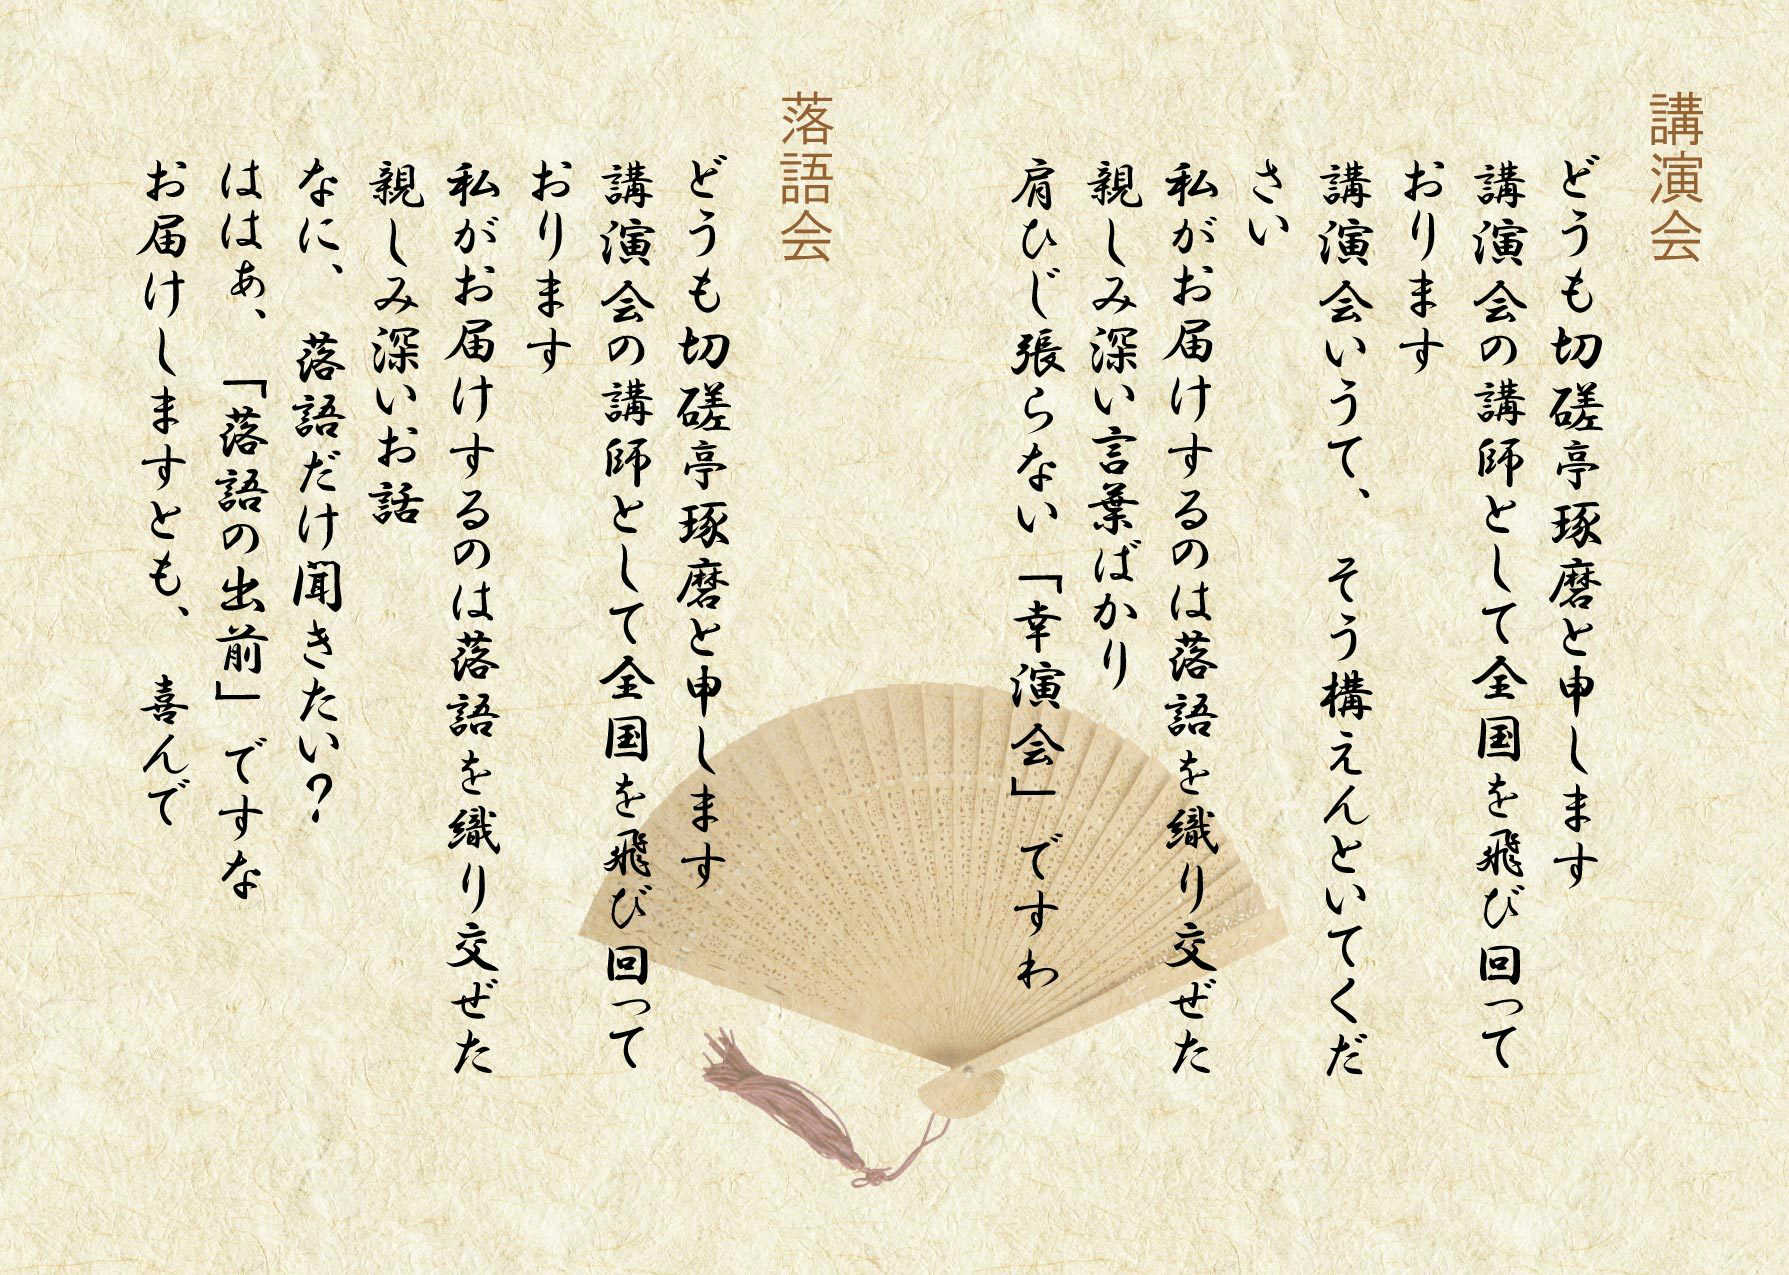 講演会
どうも切磋亭琢磨と申します
講演会の講師として全国を飛び回って
おります
講演会いうて、そう構えんといてくだ
さい
私がお届けするのは落語を織り交ぜた
親しみ深い言葉ばかり
肩ひじ張らない「幸演会」ですわ
落語会
どうも切磋亭琢磨と申します
講演会の講師として全国を飛び回って
おります
私がお届けするのは落語を織り交ぜた
親しみ深いお話
なに、落語だけ聞きたい？
ははぁ、「落語の出前」ですな
お届けしますとも、喜んで